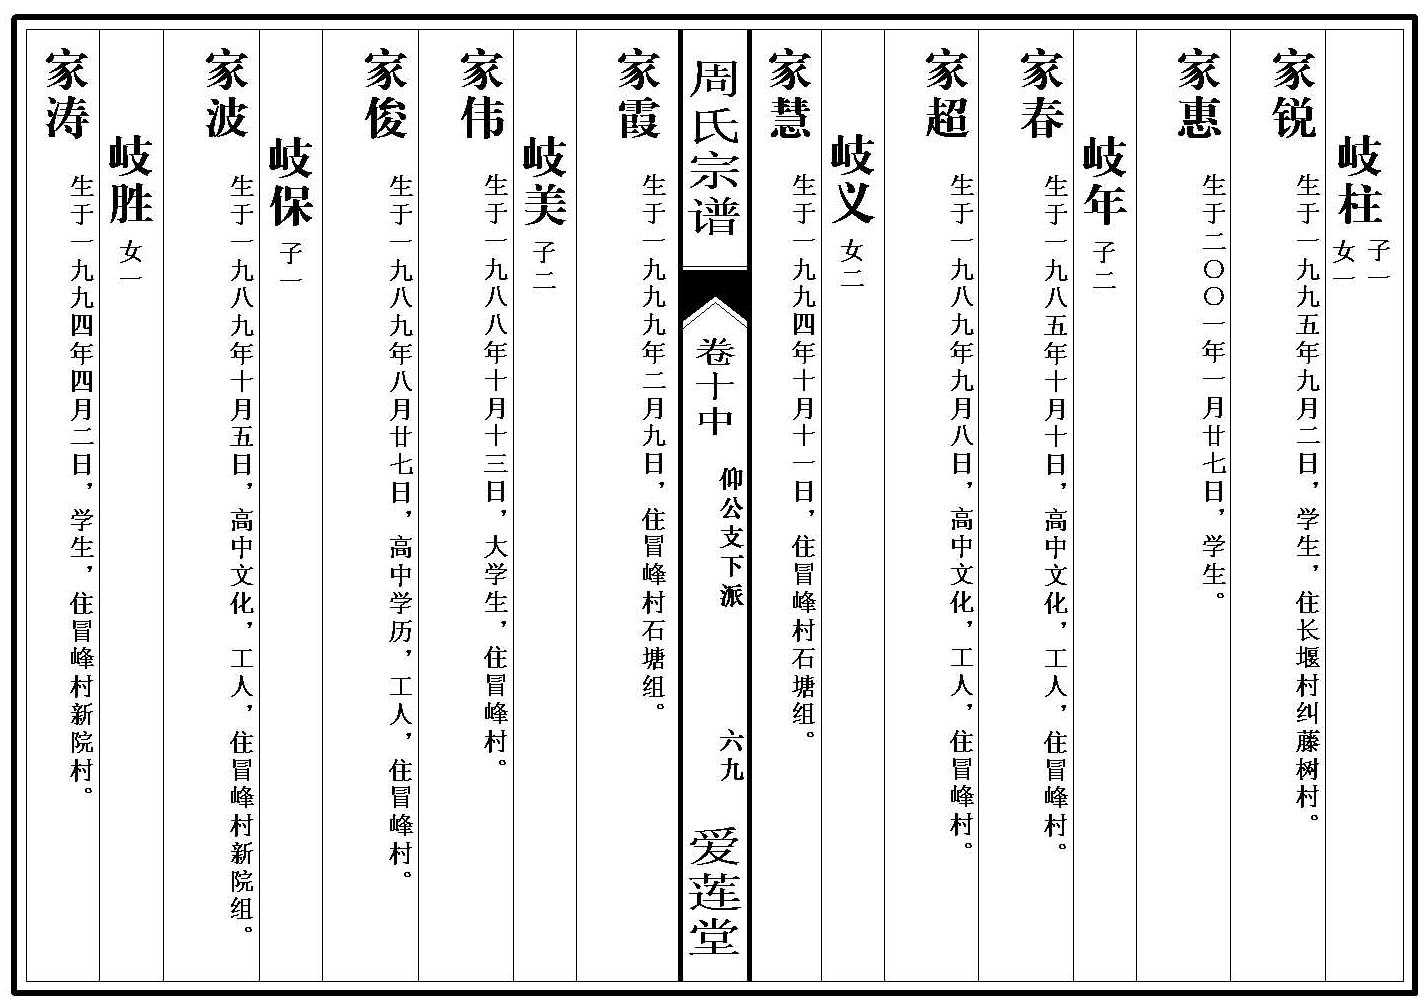 岐柱 子一 女一
家锐 生于一九九五年九月二日，学生，住长堰村纠藤树村。
家惠 生于二〇〇一年一月廿七日，学生。
岐年 子二
家春 生于一九八五年十月十日，高中文化，工人，住冒峰村。
家超 生于一九八九年九月八日，高中文化，工人，住冒峰村。
岐义 女二
家慧 生于一九九四年十月十一日，住冒峰村石塘组。
周氏宗谱 卷十中 仰公支下派 六九 爱莲堂
家霞 生于一九九九年二月九日，住冒峰村石塘组。
岐美 子二
家伟 生于一九八八年十月十三日，大学生，住冒峰村。
家俊 生于一九八九年八月廿七日，高中学历，工人，住冒峰村。
岐保 子一
家波 生于一九八九年十月五日，高中文化，工人，住冒峰村新院组。
岐胜 女一
家涛 生于一九九四年四月二日，学生，住冒峰村新院村。